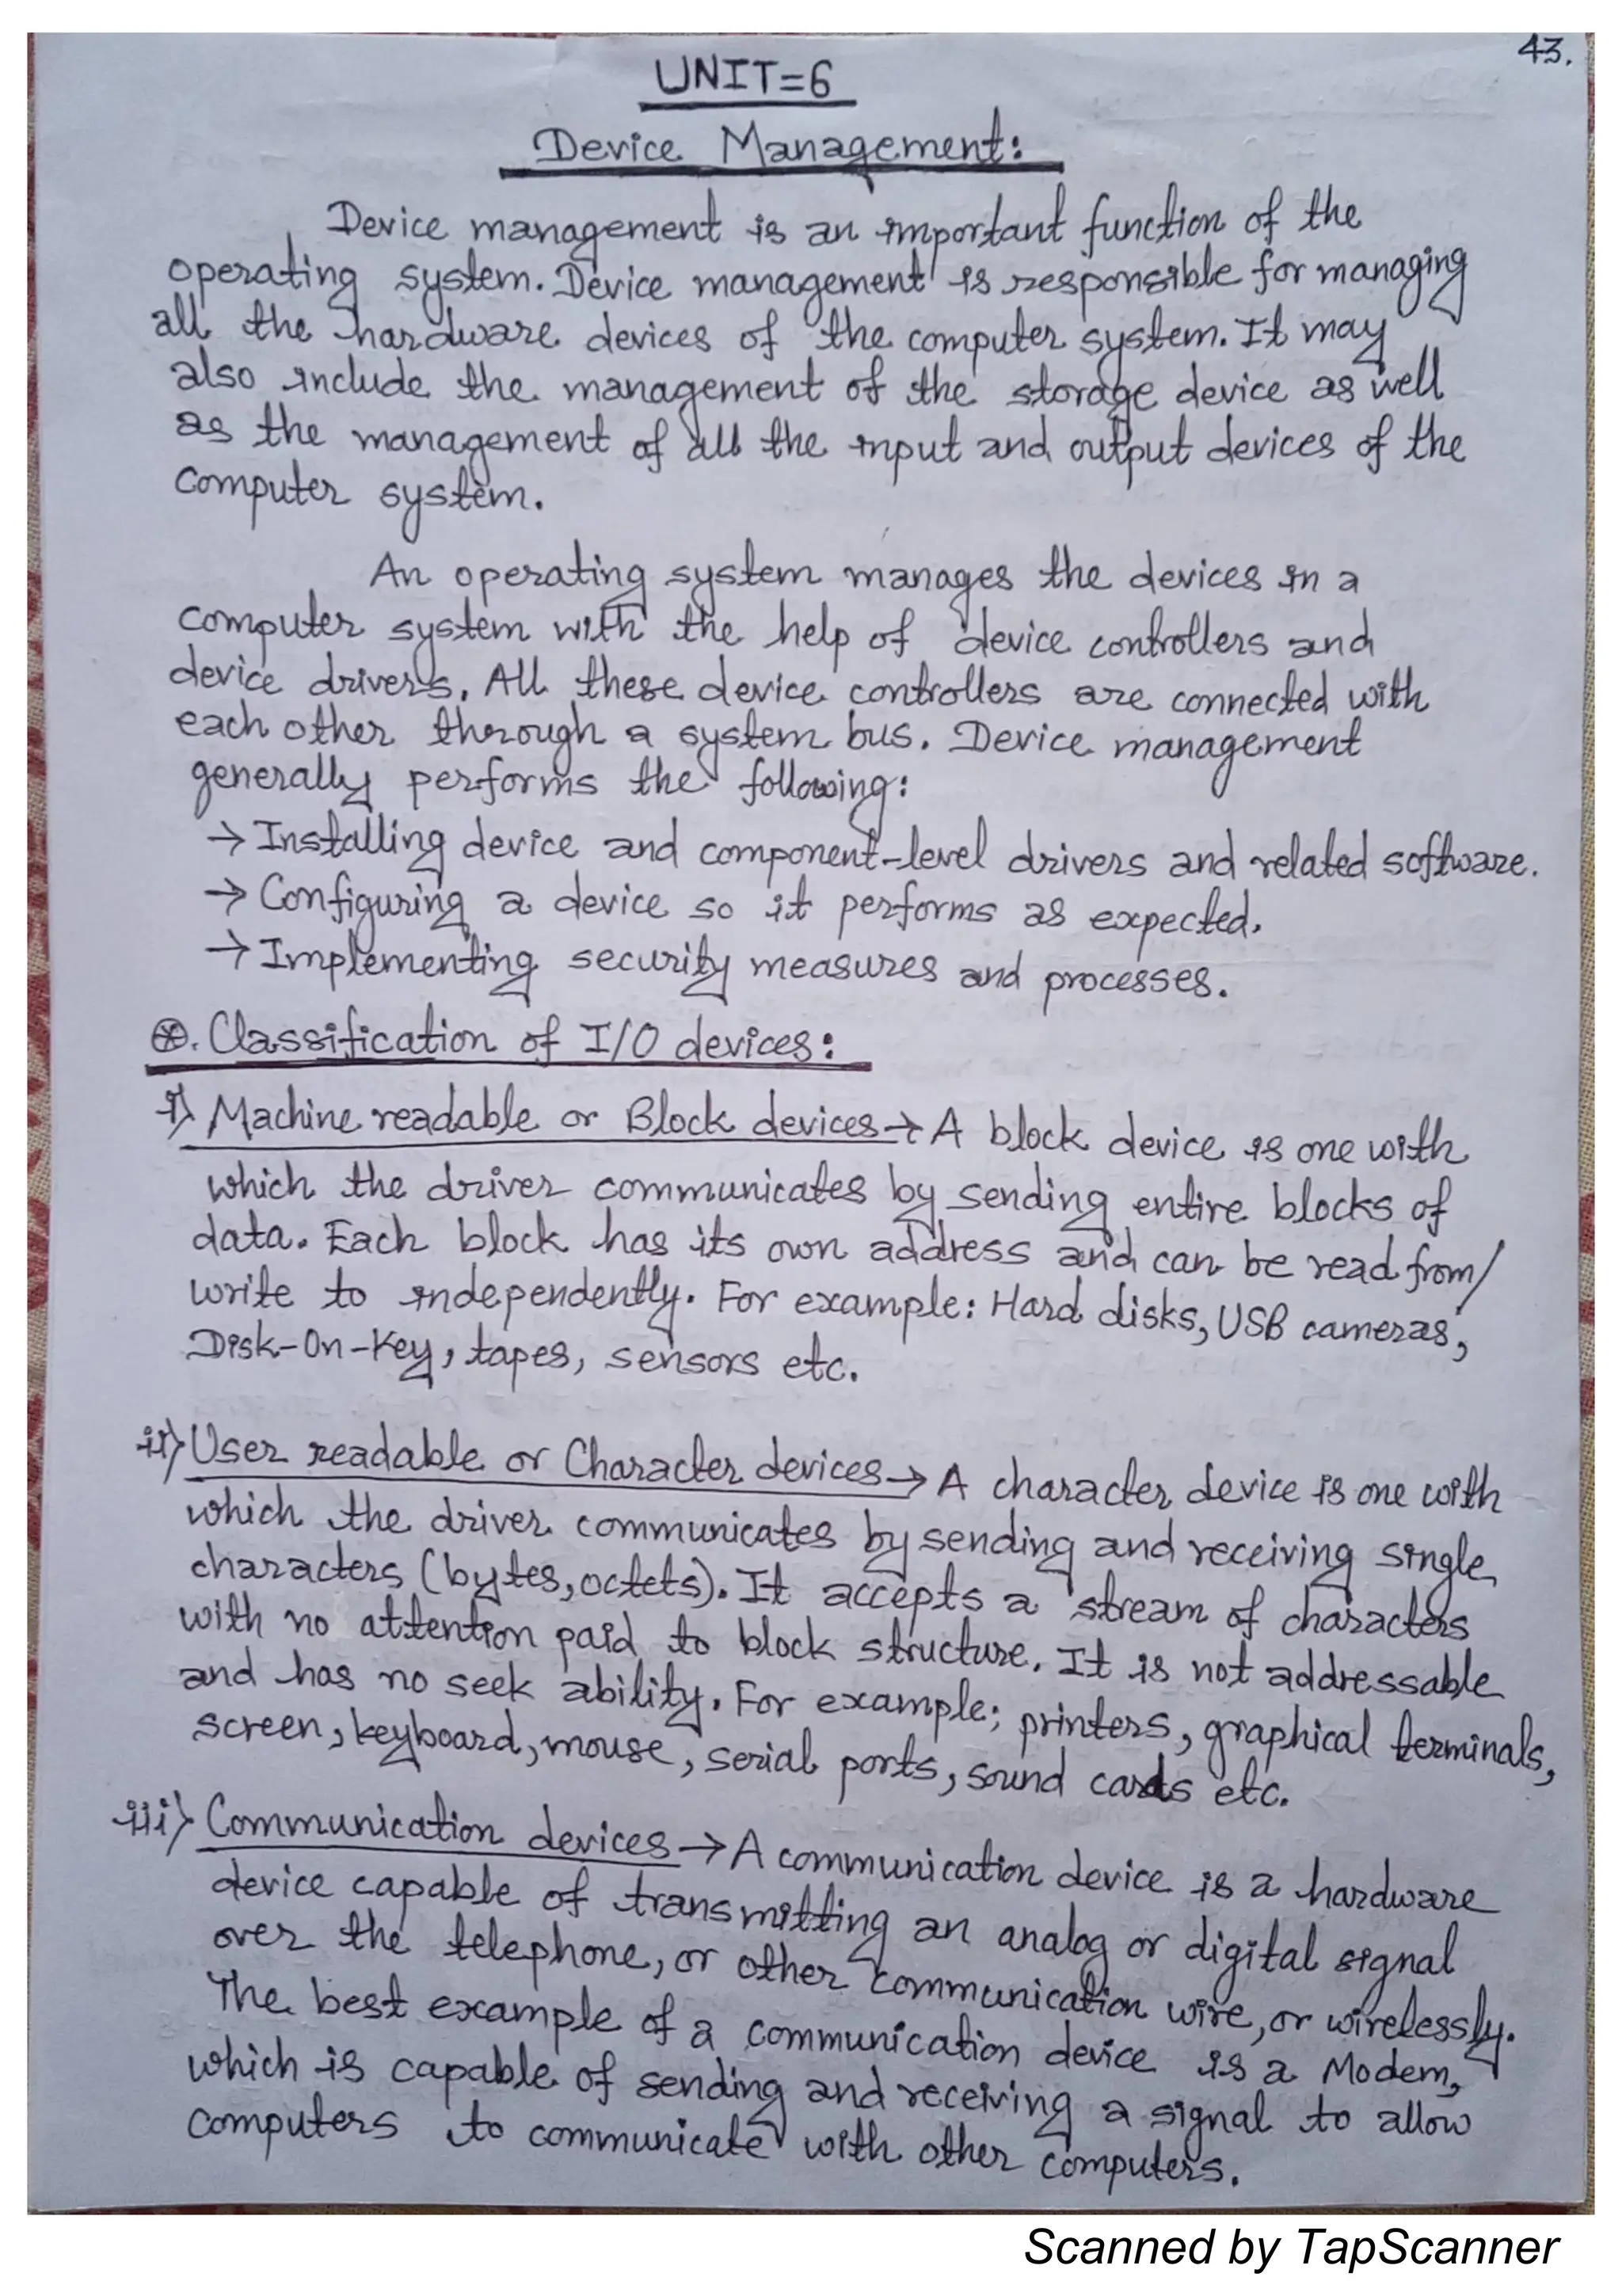 43.
UNIT=6
Device Management:
Device management is an important function of the
operating system. Device management is responsible for managing
all the hardware devices of the computer system. It may
also include the management of the storage device as well
as the management of all the input and output devices of the
computer system.
An operating system manages the devices in a
computer system with the help of device controllers and
device drivers. All these device controllers are connected with
each other through a system bus. Device management
generally performs the following:
→ Installing device and component-level drivers and related software.
→ Configuring a device so it performs as expected.
→ Implementing security measures and processes.
⊛. Classification of I/O devices:
i) Machine readable or Block devices → A block device is one with
which the driver communicates by sending entire blocks of
data. Each block has its own address and can be read from/
write to independently. For example: Hard disks, USB cameras,
Disk-On-Key, tapes, sensors etc.
ii) User readable or Character devices → A character device is one with
which the driver communicates by sending and receiving single
characters (bytes, octets). It accepts a stream of characters
with no attention paid to block structure. It is not addressable
and has no seek ability. For example; printers, graphical terminals,
screen, keyboard, mouse, serial ports, sound cards etc.
iii) Communication devices → A communication device is a hardware
device capable of transmitting an analog or digital signal
over the telephone, or other communication wire, or wirelessly.
The best example of a communication device is a Modem,
which is capable of sending and receiving a signal to allow
computers to communicate with other computers.
Scanned by TapScanner